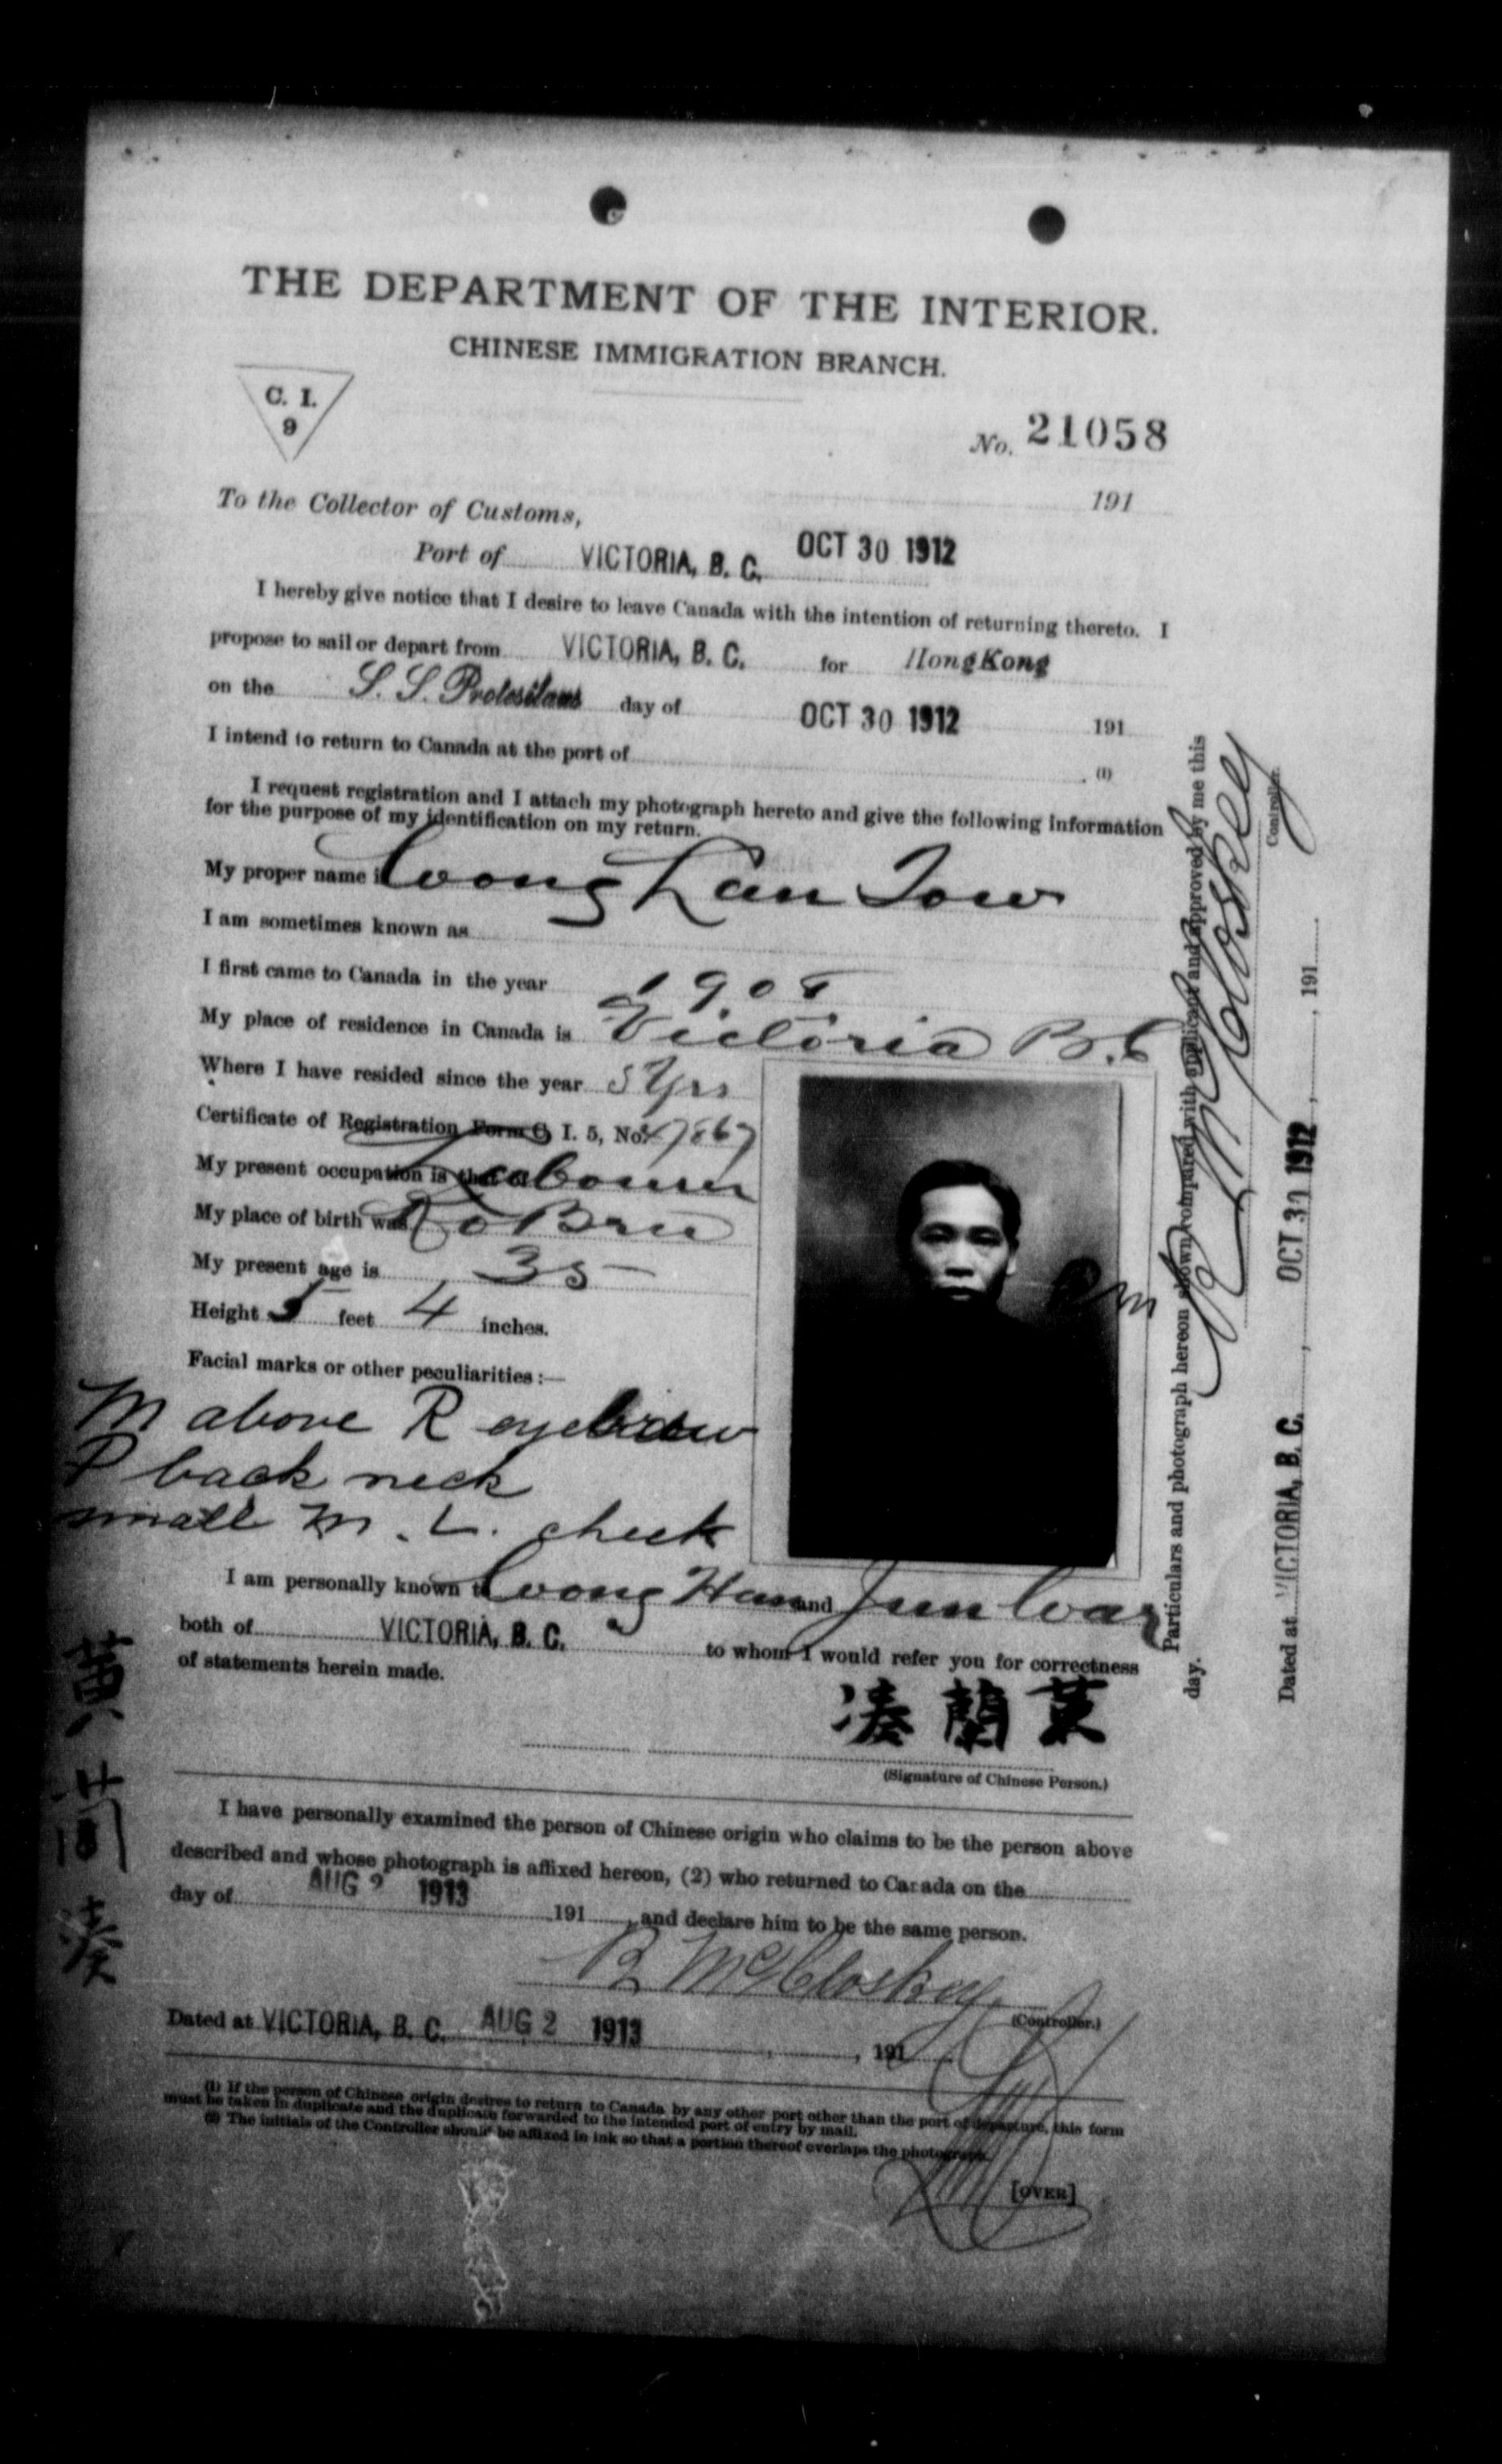 THE DEPARTMENT OF THE INTERIOR.
CHINESE IMMIGRATION BRANCH.
C. I.
9
No. 21058
191
To the Collector of Customs,
Port of VICTORIA, B. C. OCT 30 1912
I hereby give notice that I desire to leave Canada with the intention of returning thereto. I
propose to sail or depart from VICTORIA, B. C. for HongKong
on the S. S. Protesilaus day of OCT 30 1912 191
I intend to return to Canada at the port of . (1)
I request registration and I attach my photograph hereto and give the following information
for the purpose of my identification on my return.
My proper name is Wong Lan Tow
I am sometimes known as
I first came to Canada in the year 1908
My place of residence in Canada is Victoria B.C
Where I have resided since the year 5 Yrs
Certificate of Registration Form C. I. 5, No.
My present occupation is that of Labourer
My place of birth was
My present age is 35
Height 5 feet 4 inches.
Facial marks or other peculiarities :—
M above R eyebrow
P back neck
small m. L. cheek
RM
I am personally known to Wong Han and
both of VICTORIA, B. C. to whom I would refer you for correctness
of statements herein made.
湊 蘭 黄
(Signature of Chinese Person.)
I have personally examined the person of Chinese origin who claims to be the person above
described and whose photograph is affixed hereon, (2) who returned to Canada on the
day of AUG 2 1913 191 , and declare him to be the same person.
R McCloskey
(Controller.)
Dated at VICTORIA, B. C. AUG 2 1913 , 191
(1) If the person of Chinese origin desires to return to Canada by any other port other than the port of departure, this form
must be taken in duplicate and the duplicate forwarded to the intended port of entry by mail.
(2) The initials of the Controller should be affixed in ink so that a portion thereof overlaps the photograph.
[OVER]
Particulars and photograph hereon shown compared with applicant and approved by me this
day.
R McCloskey
Controller.
Dated at VICTORIA, B. C. , OCT 30 1912 , 191
黄
湊